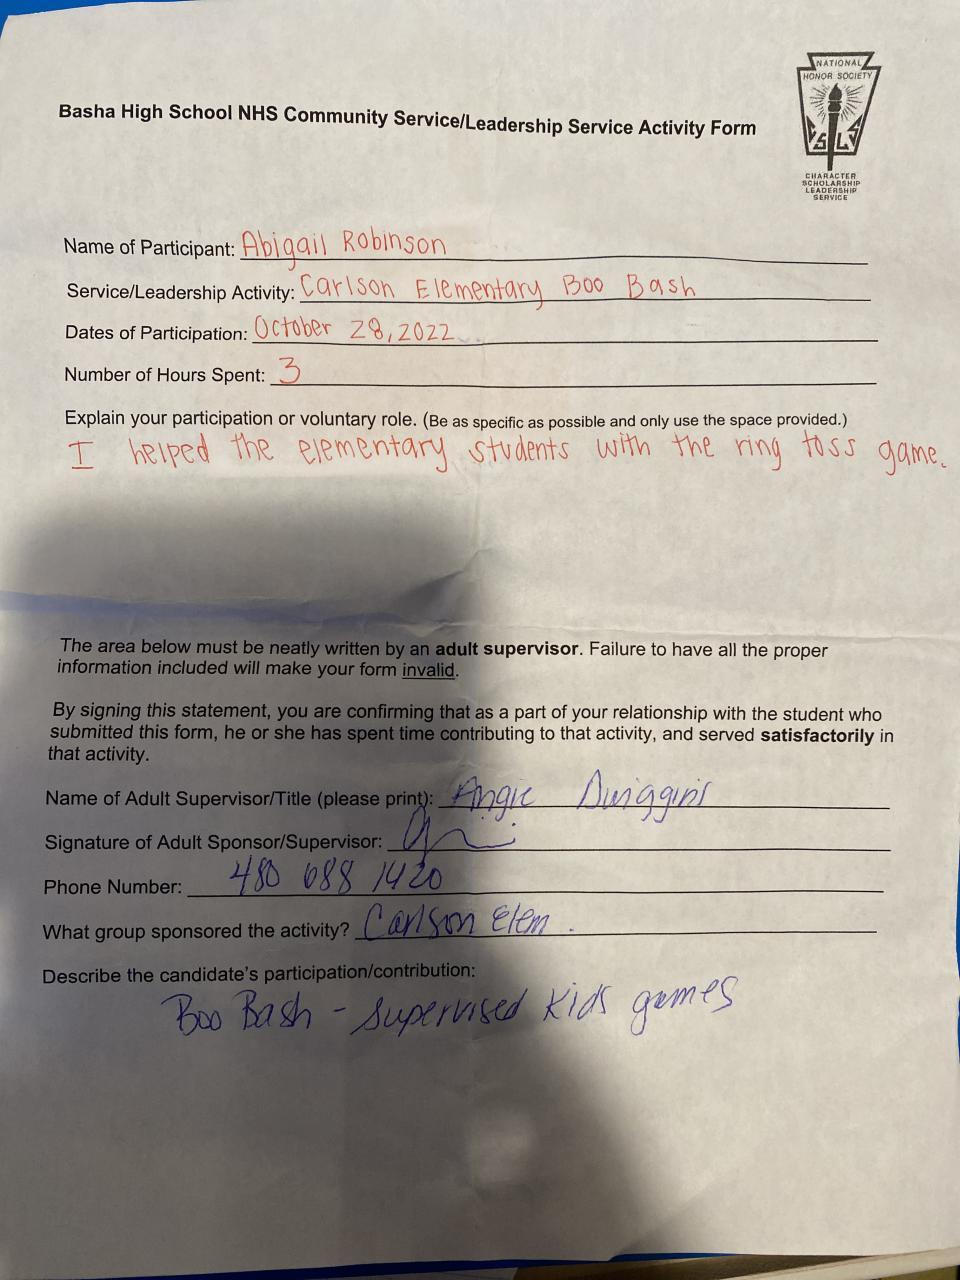 NATIONAL
HONOR SOCIETY
S L
CHARACTER
SCHOLARSHIP
LEADERSHIP
SERVICE
Basha High School NHS Community Service/Leadership Service Activity Form
Name of Participant: Abigail Robinson
Service/Leadership Activity: Carlson Elementary Boo Bash
Dates of Participation: October 28, 2022
Number of Hours Spent: 3
Explain your participation or voluntary role. (Be as specific as possible and only use the space provided.)
I helped the elementary students with the ring toss game.
The area below must be neatly written by an adult supervisor. Failure to have all the proper
information included will make your form invalid.
By signing this statement, you are confirming that as a part of your relationship with the student who
submitted this form, he or she has spent time contributing to that activity, and served satisfactorily in
that activity.
Name of Adult Supervisor/Title (please print): Angie Dwiggins
Signature of Adult Sponsor/Supervisor:
Phone Number: 480 688 1420
What group sponsored the activity? Carlson Elem.
Describe the candidate's participation/contribution:
Boo Bash - Supervised Kids games